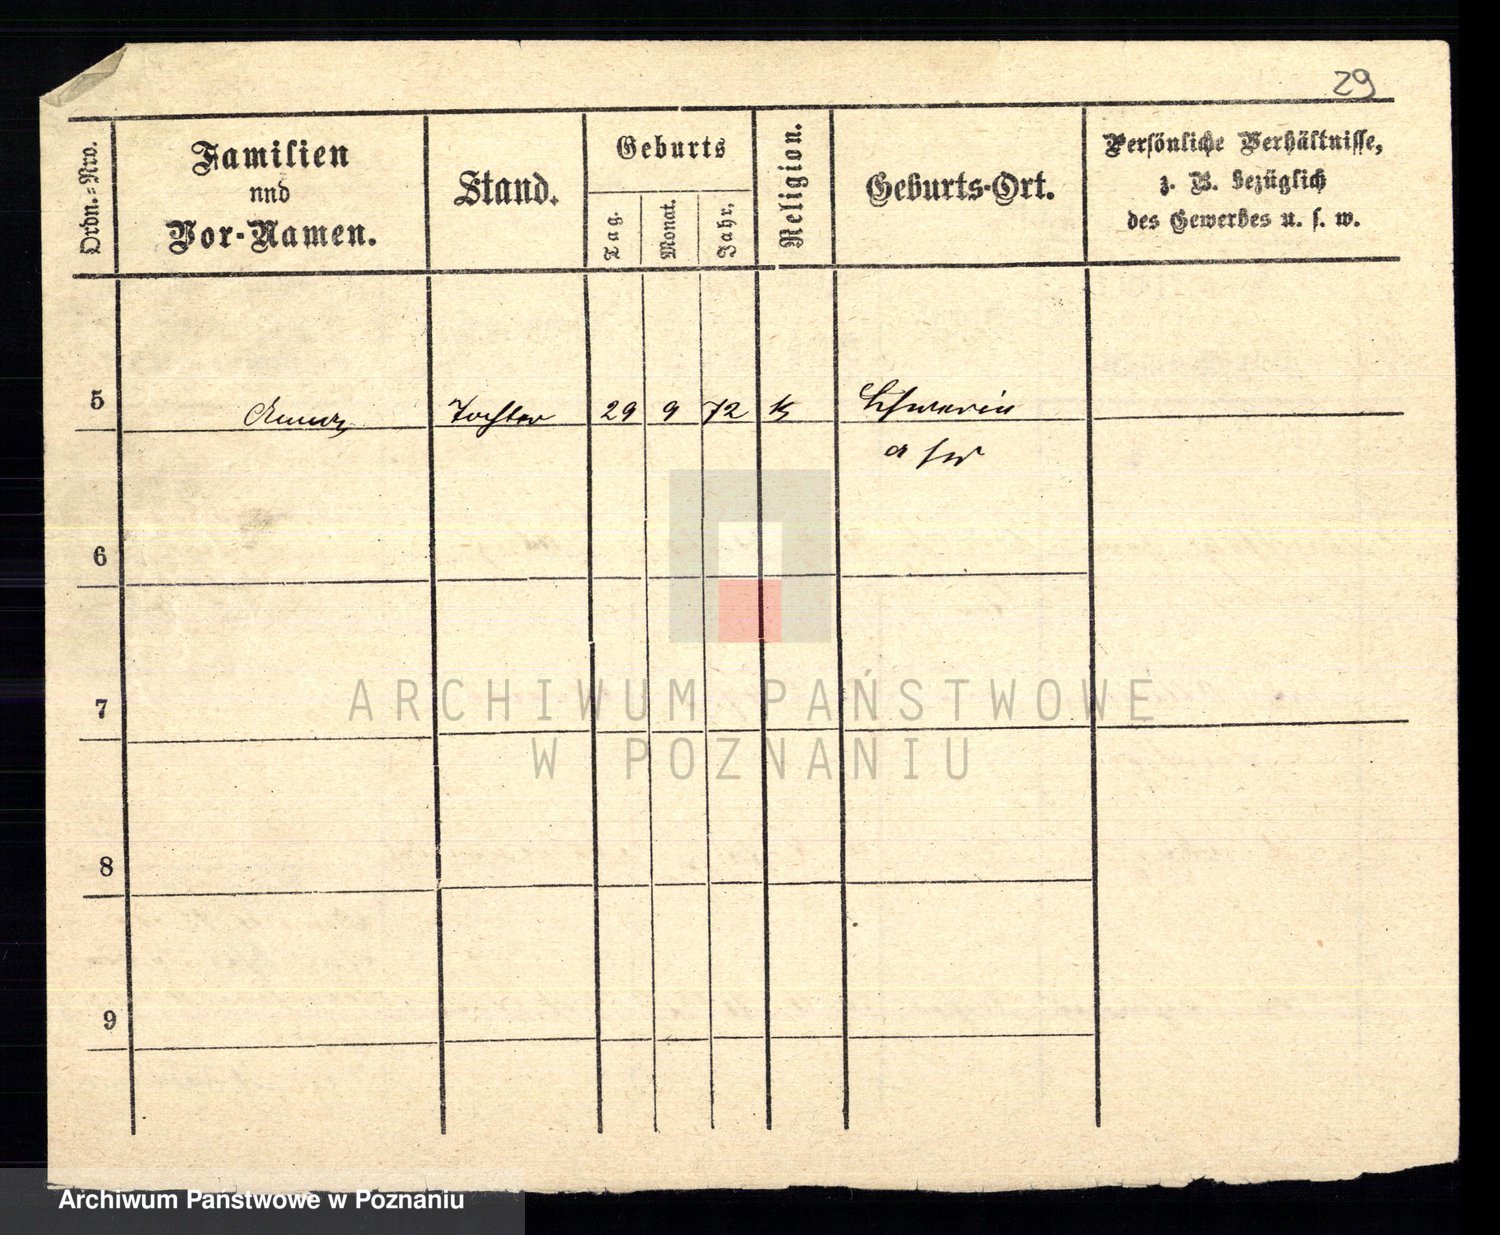 29
Ordn.=Nro.
Familien
nnd
Vor-Namen.
Stand.
Geburts
Tag.
Monat.
Jahr.
Religion.
Geburts-Ort.
Persönliche Verhältnisse,
z. B. bezüglich
des Gewerbes u. s. w.
5 Tochter 29 9 72 K Schwerin
a
6
7
8
9
ARCHIWUM PAŃSTWOWE
W POZNANIU
Archiwum Państwowe w Poznaniu